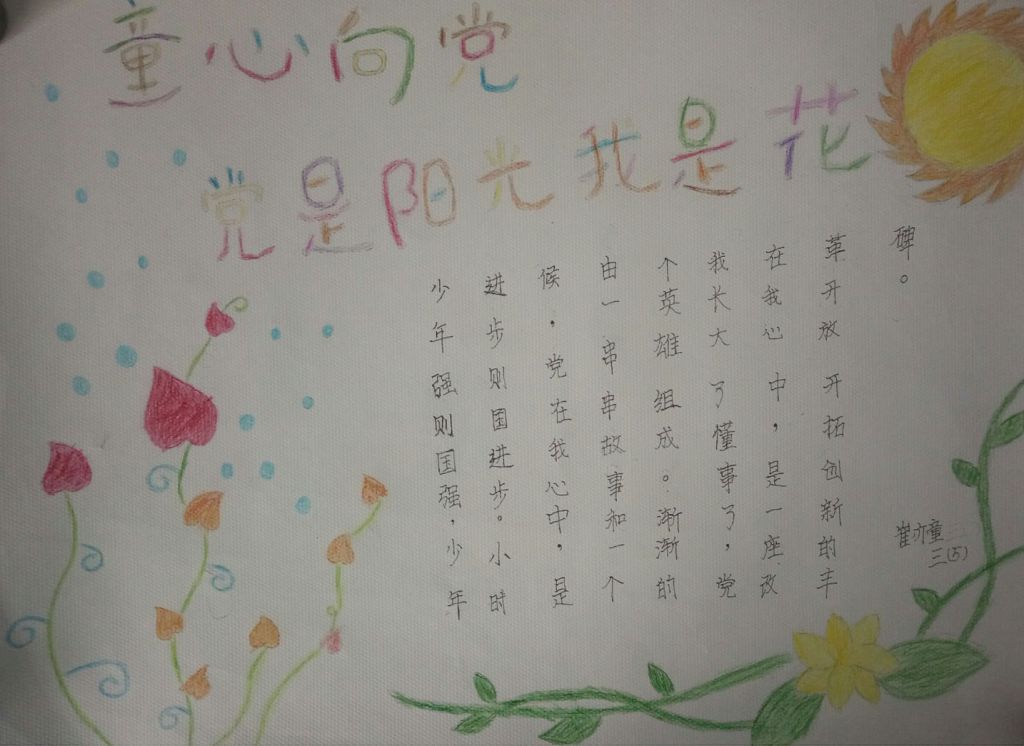 童心向党
党是阳光我是花
少年强则国强,少年
进步则国进步。小时
候,党在我心中,是
由一串串故事和一个
个英雄组成。渐渐的
我长大了懂事了,党
在我心中,是一座改
革开放开拓创新的丰
碑。
崔亦童
三(5)